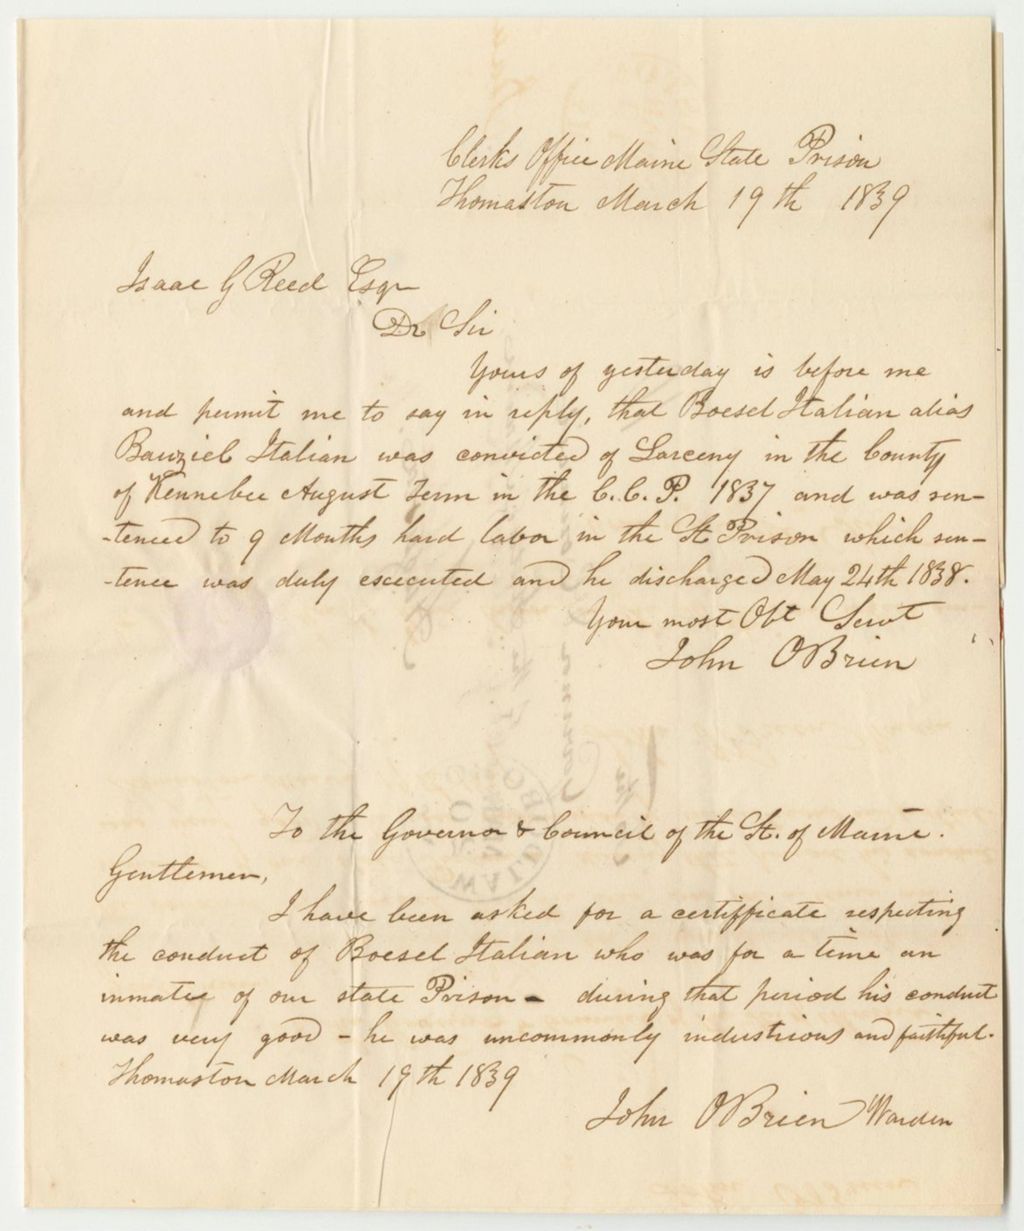 Clerks Office Maine State Prison
Thomaston March 19th 1839
Isaac G Reed Esqr
Dr Sir
Yours of yesterday is before me
and permit me to say in reply, that Boesel Italian alias
Bauziel Italian was convicted of Larceny in the County
of Kennebec August Term in the C.C.P. 1837 and was sen-
-tenced to 9 Months hard labor in the St Prison which sen-
-tence was duly excecuted and he discharged May 24th 1838.
Your most Obt Servt
John OBrien
To the Governor & Council of the St. of Maine.
Gentlemen,
I have been asked for a certifficate respecting
the conduct of Boesel Italian who was for a time an
inmate of our state Prison - during that period his conduct
was very good - he was uncommonly industrious and faithful.
Thomaston March 19th 1839
John OBrien Warden